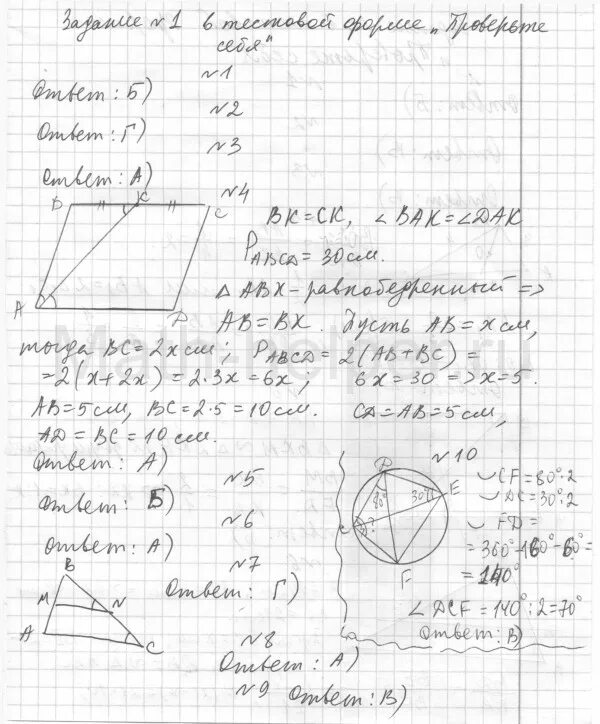 Задание №1 в тестовой форме "Проверьте
себя"
№1
Ответ: Б)
№2
Ответ: Г)
№3
Ответ: А)
№4
B K C
A D
BK = CK, ∠BAK = ∠DAK
P ABCD = 30 см.
△ ABK - равнобедренный =>
AB = BK. Пусть AB = x см,
тогда BC = 2x см; P ABCD = 2(AB + BC) =
= 2(x + 2x) = 2·3x = 6x; 6x = 30 => x = 5.
AB = 5 см, BC = 2·5 = 10 см. CD = AB = 5 см,
AD = BC = 10 см.
Ответ: А)
№5
Ответ: Б)
№6
Ответ: А)
№7
Ответ: Г)
B
M N
A C
№8
Ответ: А)
№9 Ответ: В)
№10
80° 30° E
C ?
F
◡ CF = 80°·2
◡ DC = 30°·2
◡ FD =
= 360° - 160° - 60° =
= 140°
∠ DCF = 140° : 2 = 70°
Ответ: В)